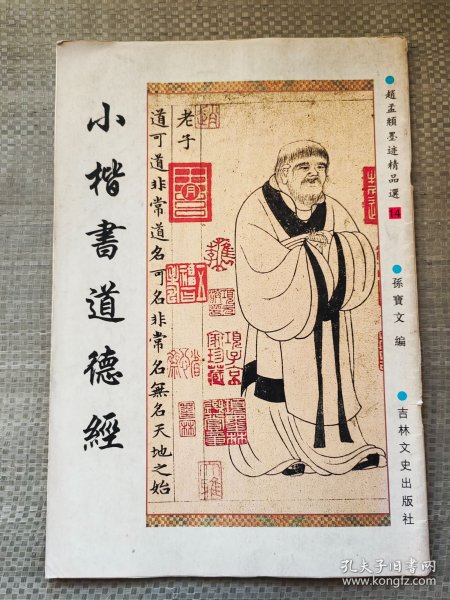 小楷書道德經
老子
道可道非常道名可名非常名無名天地之始
趙孟頫墨迹精品選
14
孫寶文 編
吉林文史出版社
孔夫子旧书网
www.kongfz.com